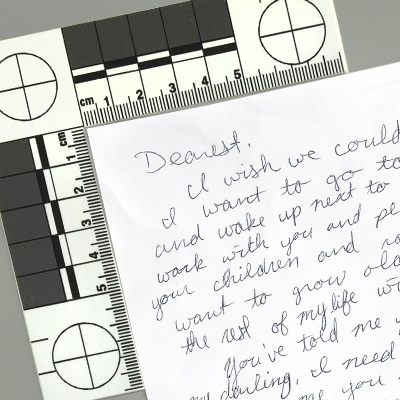 cm 1 2 3 4 5
cm
1
2
3
4
5
Dearest,
I wish we could
I want to go to
and wake up next to
work with you and
your children and
want to grow old
the rest of my life
You've told me
my darling, I need
me you